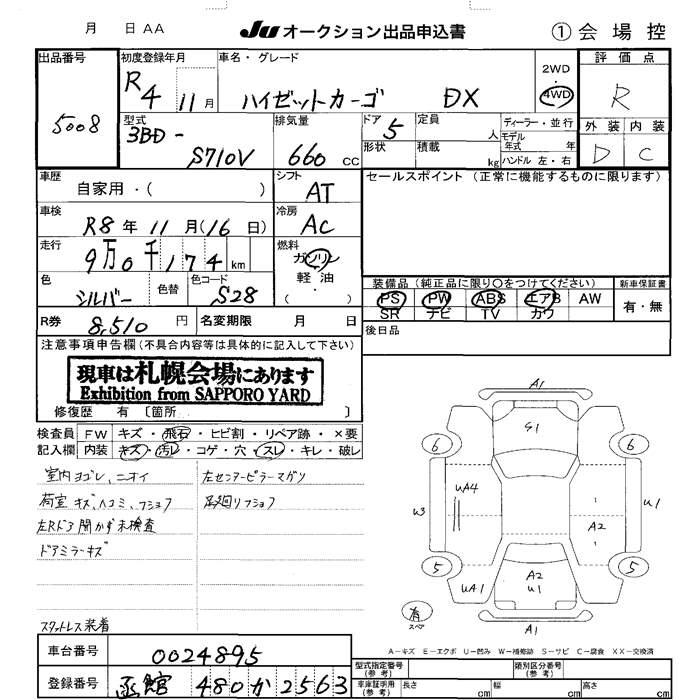 月 日 AA
JU オークション出品申込書
① 会場控
出品番号 5008
初度登録年月 R4 11月
車名・グレード ハイゼットカーゴ DX
2WD・4WD
評価点 R
外装 D 内装 C
型式 3BD- S710V
排気量 660 CC
ドア 5
形状
定員 人
積載 kg
ディーラー・並行
モデル年式 年
ハンドル 左・右
車歴 自家用・( )
シフト AT
セールスポイント (正常に機能するものに限ります)
車検 R8年 11月(16日)
冷房 AC
走行 9万0千174km
燃料 ガソリン・軽油・
色 シルバー 色替
色コード S28
装備品 (純正品に限り○をつけてください)
新車保証書
PS PW ABS エアB AW
SR ナビ TV カワ
有・無
R券 8,510円
名変期限 月 日
後日品
注意事項申告欄 (不具合内容等は具体的に記入して下さい)
現車は札幌会場にあります
Exhibition from SAPPORO YARD
修復歴 有 〔箇所 〕
検査員記入欄
FW キズ・飛石・ヒビ割・リペア跡・×要
内装 キズ・汚レ・コゲ・穴・スレ・キレ・破レ
室内ヨゴレ、ニオイ
左センターピラーマガリ
荷室キズ、ヘコミ、フショク
足廻りフショク
左Rドア開かず未検査
ドアミラーキズ
スタットレス装着
A1
S1
6 6
UA4
U3
U1
A2
5 5
UA1
A2
U1
有
スペア
A1
A-キズ E-エクボ U-凹み W-補修跡 S-サビ C-腐食 XX-交換済
車台番号 0024895
登録番号 函館 480 か 2563
型式指定番号 (参考)
類別区分番号 (参考)
車庫証明用 (参考) 長さ cm 幅 cm 高さ cm